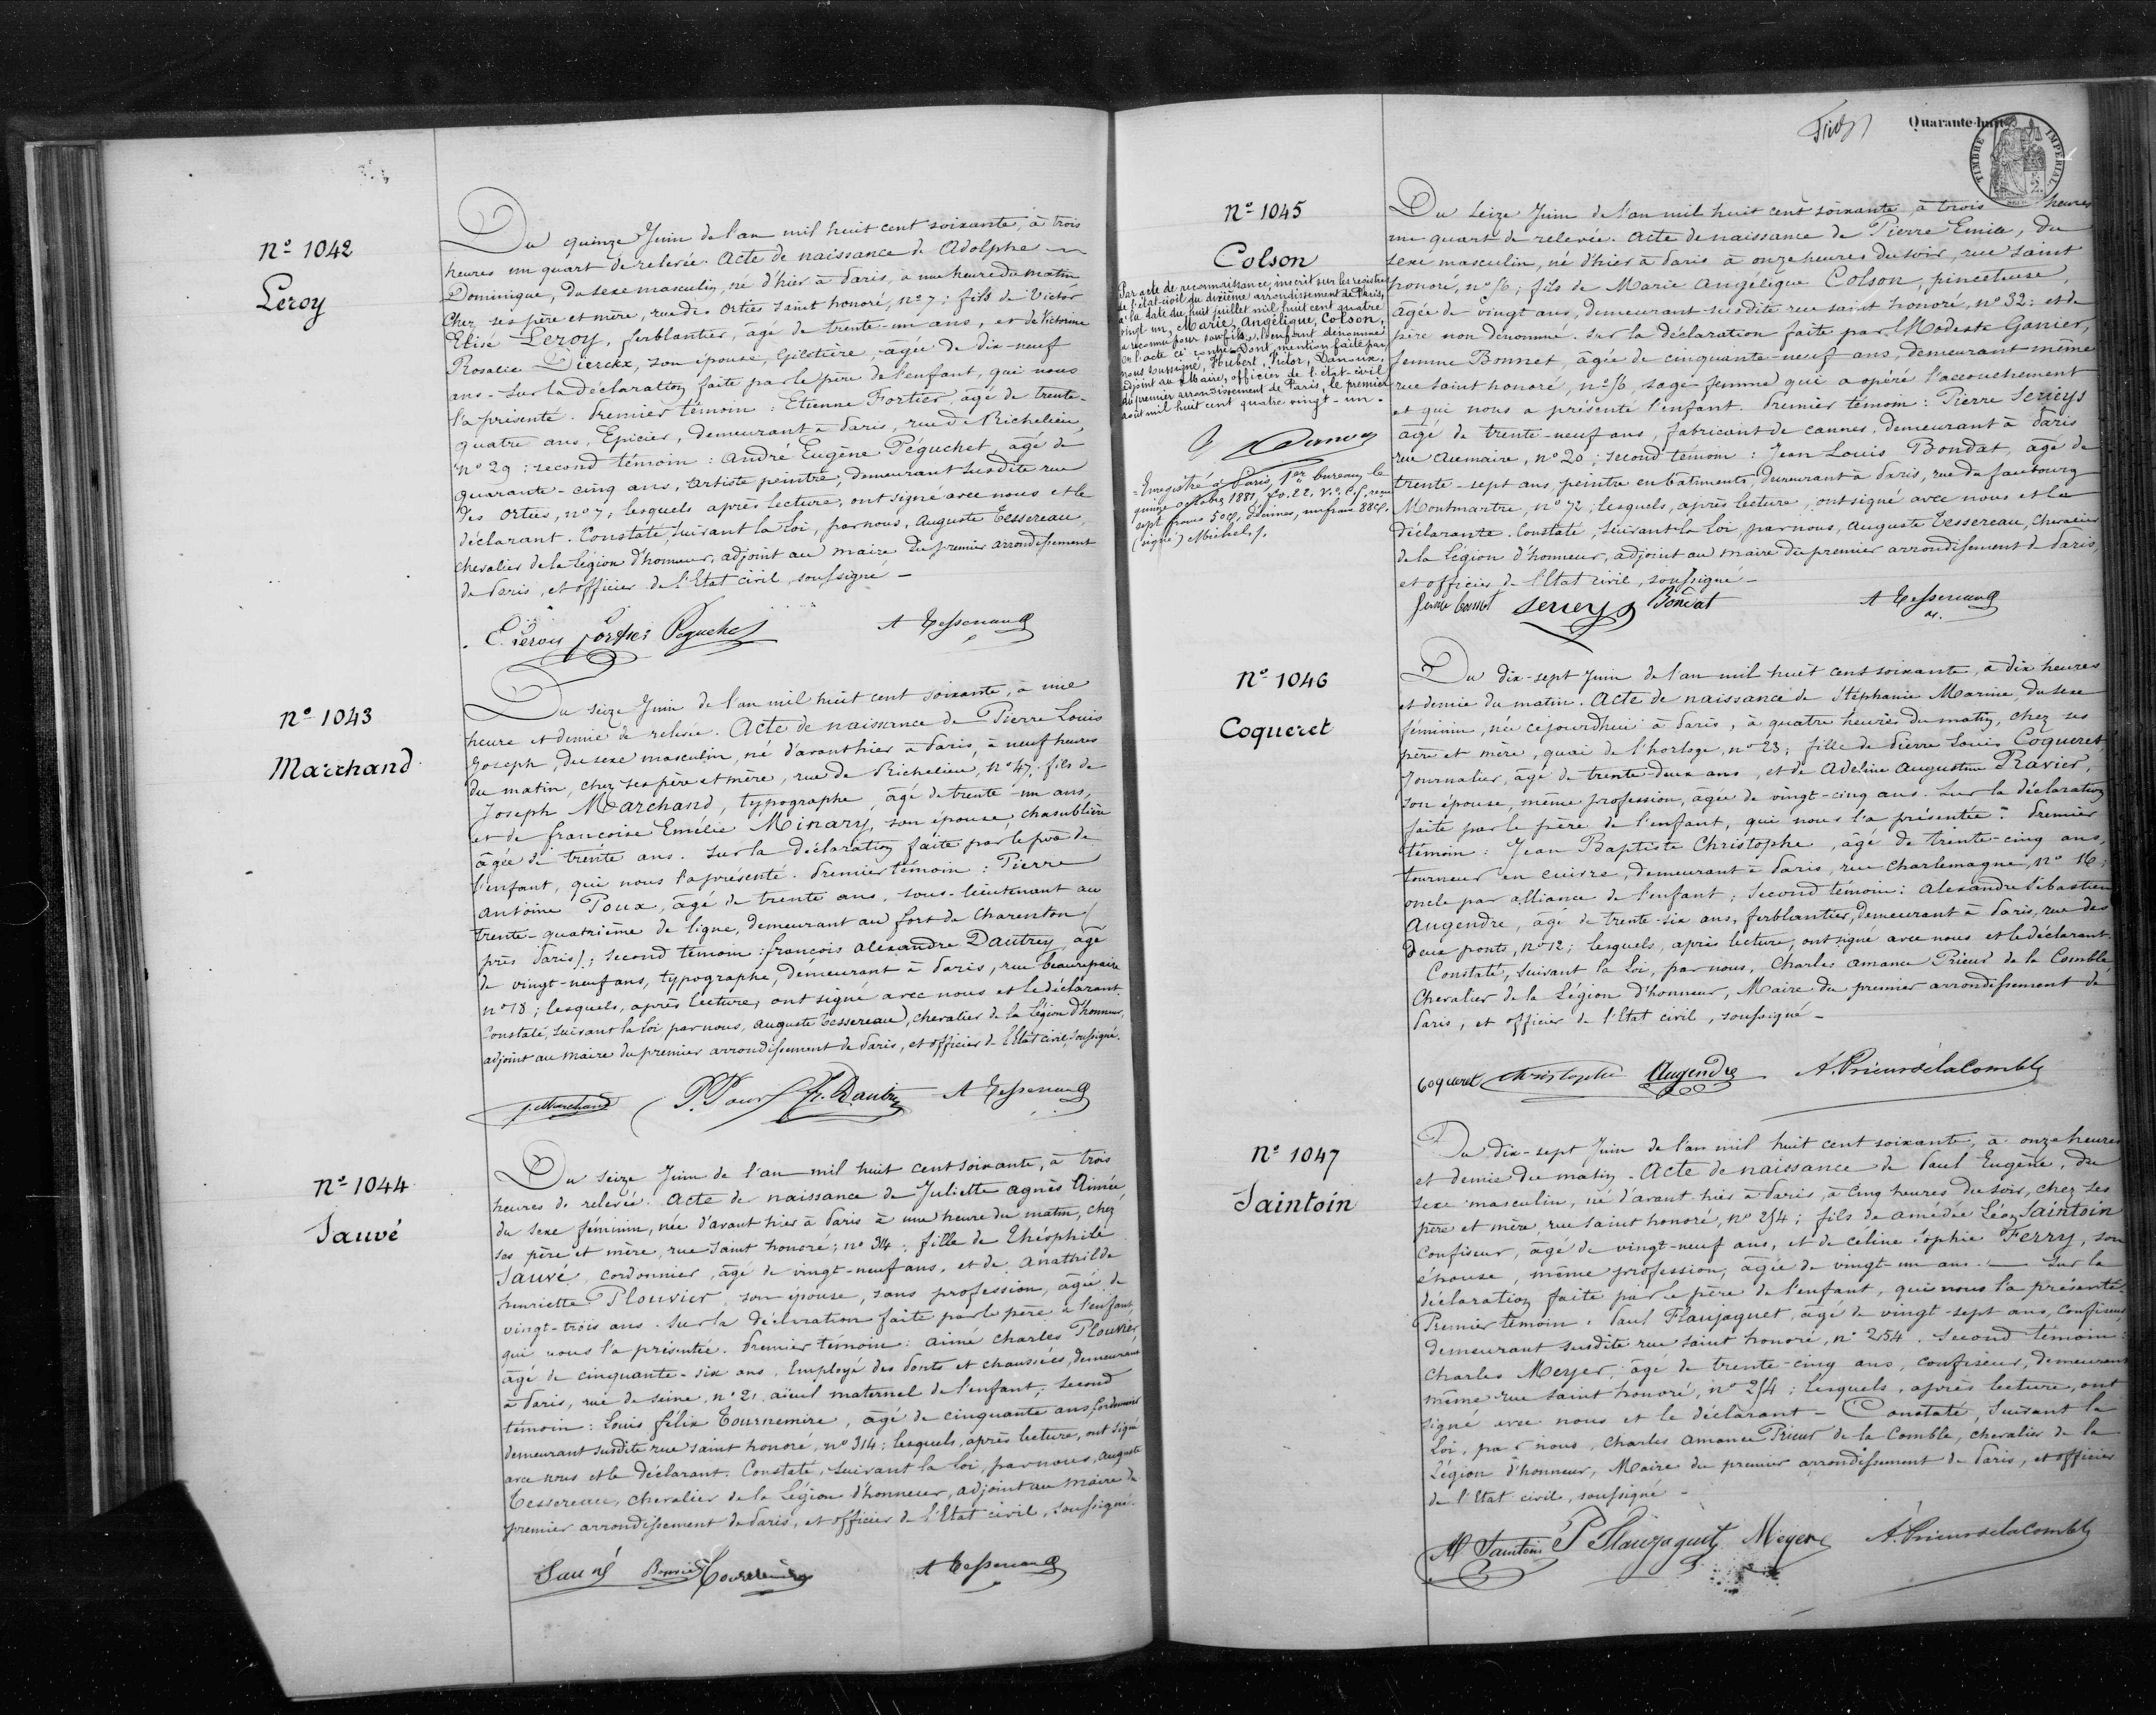 Nº 1042
Leroy
Du quinze Juin de l'an mil huit cent soixante, à trois
heures un quart de relevée. Acte de naissance de Adolphe
Dominique, du sexe masculin, né d'hier à Paris, à une heure du matin
chez ses père et mère, rue des Orties Saint honoré, nº 7 ; fils de Victor
Elisé Leroy, ferblantier, âgé de trente-un ans, et de Victorine
Rosalie Dierckx, son épouse, Giletière, âgée de dix-neuf
ans - Sur la déclaration faite par le père de l'enfant, qui nous
l'a présenté. Premier témoin : Etienne Fortier, âgé de trente-
quatre ans, Epicier, demeurant à Paris, rue de Richelieu,
nº 29 : second témoin : André Eugène Péguchet, âgé de
quarante-cinq ans, artiste peintre, demeurant susdite rue
des Orties, nº 7 ; lesquels après lecture, ont signé avec nous et le
déclarant. Constaté, suivant la Loi, par nous, Auguste Tessereau,
chevalier de la Légion d'honneur, adjoint au maire du premier arrondissement
de Paris, et officier de l'Etat civil, soussigné -
E. Leroy Fortier Péguchet A Tessereau
Nº 1043
Marchand
Du seize Juin de l'an mil huit cent soixante, à une
heure et demie de relevée. Acte de naissance de Pierre Louis
Joseph, du sexe masculin, né d'avant hier à Paris, à neuf heures
du matin, chez ses père et mère, rue de Richelieu, nº 47, fils de
Joseph Marchand, typographe, âgé de trente-un ans,
et de françoise Emélie Minary, son épouse, chasublière
âgée de trente ans. Sur la déclaration faite par le père de
l'enfant, qui nous l'a présenté. Premier témoin : Pierre
Antoine Poux, âgé de trente ans, sous-lieutenant au
trente-quatrième de ligne, demeurant au fort de Charenton (
près Paris) ; second témoin : françois Alexandre Dautrey, âgé
de vingt-neuf ans, typographe, demeurant à Paris, rue beaurepaire
nº 18 ; lesquels, après lecture, ont signé avec nous et le déclarant.
Constaté, suivant la Loi par nous, Auguste Tessereau, chevalier de la Légion d'honneur,
adjoint au maire du premier arrondissement de Paris, et officier de l'Etat civil, soussigné.
J. Marchand P. Poux A Tessereau
Nº 1044
Sauvé
Du seize Juin de l'an mil huit cent soixante, à trois
heures de relevée. Acte de naissance de Juliette Agnès Aimée,
du sexe féminin, née d'avant hier à Paris à une heure du matin, chez
ses père et mère, rue Saint honoré, nº 314 ; fille de Théophile
Sauvé, cordonnier, âgé de vingt-neuf ans, et de Anathilde
henriette Plouvier, son épouse, sans profession, âgée de
vingt-trois ans. Sur la déclaration faite par le père de l'enfant,
qui nous l'a présentée. Premier témoin : Aimé Charles Plouvier,
âgé de cinquante-six ans, Employé des Ponts et chaussées, demeurant
à Paris, rue de Seine, nº 2, aïeul maternel de l'enfant ; second
témoin : Louis félix Tournemire, âgé de cinquante ans, Cordonnier
demeurant susdite rue Saint honoré, nº 314 ; lesquels, après lecture, ont signé
avec nous et le déclarant. Constaté, suivant la Loi, par nous, Auguste
Tessereau, chevalier de la Légion d'honneur, adjoint au maire du
premier arrondissement de Paris, et officier de l'Etat civil, soussigné.
Sauvé Tournemire A Tessereau
Quarante-huit
TIMBRE IMPERIAL
Nº 1045
Colson
Par acte de reconnaissance, inscrit sur les registres
de l'état-civil du dixième arrondissement de Paris,
à la date du huit juillet mil huit cent quatre
vingt un, Marie, Angélique, Colson,
a reconnu pour son fils, l'enfant dénommé
en l'acte ci-contre. Dont mention faite par
nous soussigné, Hubert, Victor,
adjoint au Maire, officier de l'état-civil
du premier arrondissement de Paris, le premier
août mil huit cent quatre vingt-un.
Enregistré à Paris, 1er bureau, le
quinze octobre 1881, reçu
sept francs 50c, Décimes, un franc 88c.
(signé) Michel.
Du seize Juin de l'an mil huit cent soixante, à trois heures
un quart de relevée. Acte de naissance de Pierre Emile, du
sexe masculin, né d'hier à Paris à onze heures du soir, rue Saint
honoré, nº 56 ; fils de Marie Angélique Colson, pinceteuse,
âgée de vingt ans, demeurant susdite rue saint honoré nº 32 ; et de
père non dénommé. Sur la déclaration faite par Modeste Ganier,
femme Bonnet, âgée de cinquante-neuf ans, demeurant même
rue Saint honoré, nº 56, sage-femme qui a opéré l'accouchement
et qui nous a présenté l'enfant. Premier témoin : Pierre Serieys
âgé de trente-neuf ans, fabricant de cannes, demeurant à Paris
rue Aumaire, nº 20 ; second témoin : Jean Louis Bondat, âgé de
trente-sept ans, peintre en bâtiments, demeurant à Paris, rue du faubourg
Montmartre, nº 72 ; lesquels, après lecture, ont signé avec nous et la
déclarante. Constaté, suivant la Loi, par nous, Auguste Tessereau, Chevalier
de la Légion d'honneur, adjoint au maire du premier arrondissement de Paris,
et officier de l'Etat civil, soussigné -
femme bonnet Serieys Bondat A Tessereau
Nº 1046
Coqueret
Du dix-sept Juin de l'an mil huit cent soixante, à dix heures
et demie du matin. Acte de naissance de Stéphanie Marine, du sexe
féminin, née cejourd'hui à Paris, à quatre heures du matin, chez ses
père et mère, quai de l'horloge, nº 23 ; fille de Pierre Louis Coqueret
Journalier, âgé de trente-deux ans, et de Adeline Augustine Ravier,
son épouse, même profession, âgée de vingt-cinq ans. Sur la déclaration
faite par le père de l'enfant, qui nous l'a présentée. Premier
témoin : Jean Baptiste Christophe, âgé de trente-cinq ans,
tourneur en cuivre, demeurant à Paris, rue Charlemagne, nº 16 ;
oncle par alliance de l'enfant ; second témoin : Alexandre Sébastien
Augendre, âgé de trente-six ans, ferblantier, demeurant à Paris, rue des
Deux ponts, nº 12 ; lesquels, après lecture, ont signé avec nous et le déclarant.
Constaté, suivant la Loi, par nous, Charles Amance Prieur de la Comble
Chevalier de la Légion d'honneur, Maire du premier arrondissement de
Paris, et officier de l'Etat civil, soussigné -
Coqueret Christophe Augendre A. Prieur de la Comble
Nº 1047
Saintoin
Du dix-sept Juin de l'an mil huit cent soixante, à onze heures
et demie du matin. Acte de naissance de Paul Eugène, du
sexe masculin, né d'avant-hier à Paris, à Cinq heures du soir, chez ses
père et mère, rue Saint honoré, nº 254 ; fils de Amédée Léon Saintoin
Confiseur, âgé de vingt-neuf ans, et de Céline Sophie Ferry, son
épouse, même profession, âgée de vingt-un ans. Sur la
déclaration faite par le père de l'enfant, qui nous l'a présenté.
Premier témoin : Paul Flaujaguet, âgé de vingt-sept ans, Confiseur,
demeurant susdite rue Saint honoré, nº 254. Second témoin :
Charles Meyer, âgé de trente-cinq ans, confiseur, demeurant
même rue Saint honoré, nº 254 ; lesquels, après lecture, ont
signé avec nous et le déclarant - Constaté, suivant la
Loi, par nous, Charles Amance Prieur de la Comble, chevalier de la
Légion d'honneur, Maire du premier arrondissement de Paris, et officier
de l'Etat civil, soussigné -
Saintoin P Flaujaguet Meyer A. Prieur de la Comble